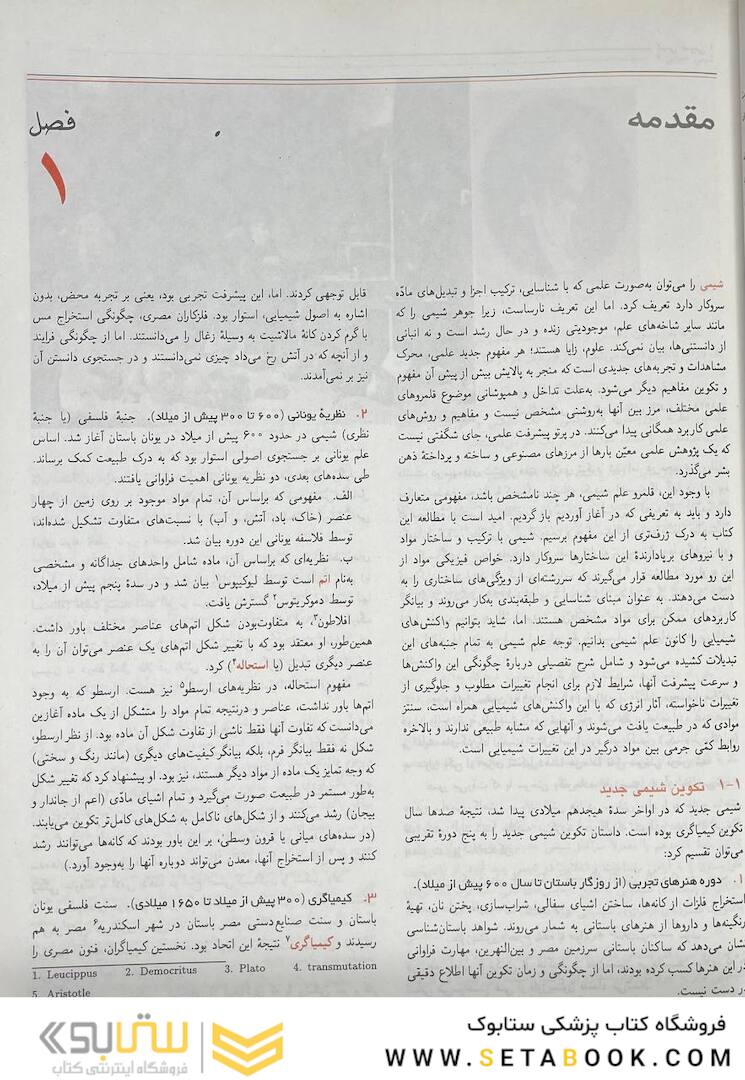 مقدمه
فصل
۱
شیمی را می‌توان به‌صورت علمی که با شناسایی، ترکیب اجزا و تبدیل‌های مادّه
سروکار دارد تعریف کرد. اما این تعریف نارساست، زیرا جوهر شیمی را که
مانند سایر شاخه‌های علم، موجودیتی زنده و در حال رشد است و نه انبانی
از دانستنی‌ها، بیان نمی‌کند. علوم، زایا هستند؛ هر مفهوم جدید علمی، محرک
مشاهدات و تجربه‌های جدیدی است که منجر به پالایش بیش از پیش آن مفهوم
و تکوین مفاهیم دیگر می‌شود. به‌علت تداخل و همپوشانی موضوع قلمروهای
علمی مختلف، مرز بین آنها به‌روشنی مشخص نیست و مفاهیم و روش‌های
علمی کاربرد همگانی پیدا می‌کنند. در پرتو پیشرفت علمی، جای شگفتی نیست
که یک پژوهش علمی معیّن بارها از مرزهای مصنوعی و ساخته و پرداختهٔ ذهن
بشر می‌گذرد.
با وجود این، قلمرو علم شیمی، هر چند نامشخص باشد، مفهومی متعارف
دارد و باید به تعریفی که در آغاز آوردیم بازگردیم. امید است با مطالعه این
کتاب به درک ژرف‌تری از این مفهوم برسیم. شیمی با ترکیب و ساختار مواد
و با نیروهای برپادارندهٔ این ساختارها سروکار دارد. خواص فیزیکی مواد از
این رو مورد مطالعه قرار می‌گیرند که سررشته‌ای از ویژگی‌های ساختاری را به
دست می‌دهند. به عنوان مبنای شناسایی و طبقه‌بندی به‌کار می‌روند و بیانگر
کاربردهای ممکن برای مواد مشخص هستند. اما، شاید بتوانیم واکنش‌های
شیمیایی را کانون علم شیمی بدانیم. توجه علم شیمی به تمام جنبه‌های این
تبدیلات کشیده می‌شود و شامل شرح تفصیلی دربارهٔ چگونگی این واکنش‌ها
و سرعت پیشرفت آنها، شرایط لازم برای انجام تغییرات مطلوب و جلوگیری از
تغییرات ناخواسته، آثار انرژی که با این واکنش‌های شیمیایی همراه است، سنتز
موادی که در طبیعت یافت می‌شوند و آنهایی که مشابه طبیعی ندارند و بالاخره
روابط کمّی جرمی بین مواد درگیر در این تغییرات شیمیایی است.
۱-۱ تکوین شیمی جدید
شیمی جدید که در اواخر سدهٔ هیجدهم میلادی پیدا شد، نتیجهٔ صدها سال
تکوین کیمیاگری بوده است. داستان تکوین شیمی جدید را به پنج دورهٔ تقریبی
می‌توان تقسیم کرد:
۱. دوره هنرهای تجربی (از روزگار باستان تا سال ۶۰۰ پیش از میلاد).
استخراج فلزات از کانه‌ها، ساختن اشیای سفالی، شراب‌سازی، پختن نان، تهیهٔ
رنگینه‌ها و داروها از هنرهای باستانی به شمار می‌روند. شواهد باستان‌شناسی
نشان می‌دهد که ساکنان باستانی سرزمین مصر و بین‌النهرین، مهارت فراوانی
در این هنرها کسب کرده بودند، اما از چگونگی و زمان تکوین آنها اطلاع دقیقی
در دست نیست.
قابل توجهی کردند. اما، این پیشرفت تجربی بود، یعنی بر تجربه محض، بدون
اشاره به اصول شیمیایی، استوار بود. فلزکاران مصری، چگونگی استخراج مس
با گرم کردن کانهٔ مالاشیت به وسیلهٔ زغال را می‌دانستند. اما از چگونگی فرایند
و از آنچه که در آتش رخ می‌داد چیزی نمی‌دانستند و در جستجوی دانستن آن
نیز بر نمی‌آمدند.
۲. نظریهٔ یونانی (۶۰۰ تا ۳۰۰ پیش از میلاد). جنبهٔ فلسفی (یا جنبهٔ
نظری) شیمی در حدود ۶۰۰ پیش از میلاد در یونان باستان آغاز شد. اساس
علم یونانی بر جستجوی اصولی استوار بود که به درک طبیعت کمک برساند.
طی سده‌های بعدی، دو نظریه یونانی اهمیت فراوانی یافتند.
الف. مفهومی که براساس آن، تمام مواد موجود بر روی زمین از چهار
عنصر (خاک، باد، آتش، و آب) با نسبت‌های متفاوت تشکیل شده‌اند،
توسط فلاسفه یونانی این دوره بیان شد.
ب. نظریه‌ای که براساس آن، ماده شامل واحدهای جداگانه و مشخصی
به‌نام اتم است توسط لیوکیپوس۱ بیان شد و در سدهٔ پنجم پیش از میلاد،
توسط دموکریتوس۲ گسترش یافت.
افلاطون۳، به متفاوت‌بودن شکل اتم‌های عناصر مختلف باور داشت.
همین‌طور، او معتقد بود که با تغییر شکل اتم‌های یک عنصر می‌توان آن را به
عنصر دیگری تبدیل (یا استحاله۴) کرد.
مفهوم استحاله، در نظریه‌های ارسطو۵ نیز هست. ارسطو که به وجود
اتم‌ها باور نداشت، عناصر و درنتیجه تمام مواد را متشکل از یک ماده آغازین
می‌دانست که تفاوت آنها فقط ناشی از تفاوت شکل آن ماده بود. از نظر ارسطو،
شکل نه فقط بیانگر فرم، بلکه بیانگر کیفیت‌های دیگری (مانند رنگ و سختی)
که وجه تمایز یک ماده از مواد دیگر هستند، نیز بود. او پیشنهاد کرد که تغییر شکل
به‌طور مستمر در طبیعت صورت می‌گیرد و تمام اشیای مادّی (اعم از جاندار و
بیجان) رشد می‌کنند و از شکل‌های ناکامل به شکل‌های کامل‌تر تکوین می‌یابند.
(در سده‌های میانی یا قرون وسطیٰ، بر این باور بودند که کانه‌ها می‌توانند رشد
کنند و پس از استخراج آنها، معدن می‌تواند دوباره آنها را به‌وجود آورد.)
۳. کیمیاگری (۳۰۰ پیش از میلاد تا ۱۶۵۰ میلادی). سنت فلسفی یونان
باستان و سنت صنایع‌دستی مصر باستان در شهر اسکندریه۶ مصر به هم
رسیدند و کیمیاگری۷ نتیجهٔ این اتحاد بود. نخستین کیمیاگران، فنون مصری را
1. Leucippus 2. Democritus 3. Plato 4. transmutation
5. Aristotle
فروشگاه کتاب پزشکی ستابوک
WWW.SETABOOK.COM
ستابوک
فروشگاه اینترنتی کتاب